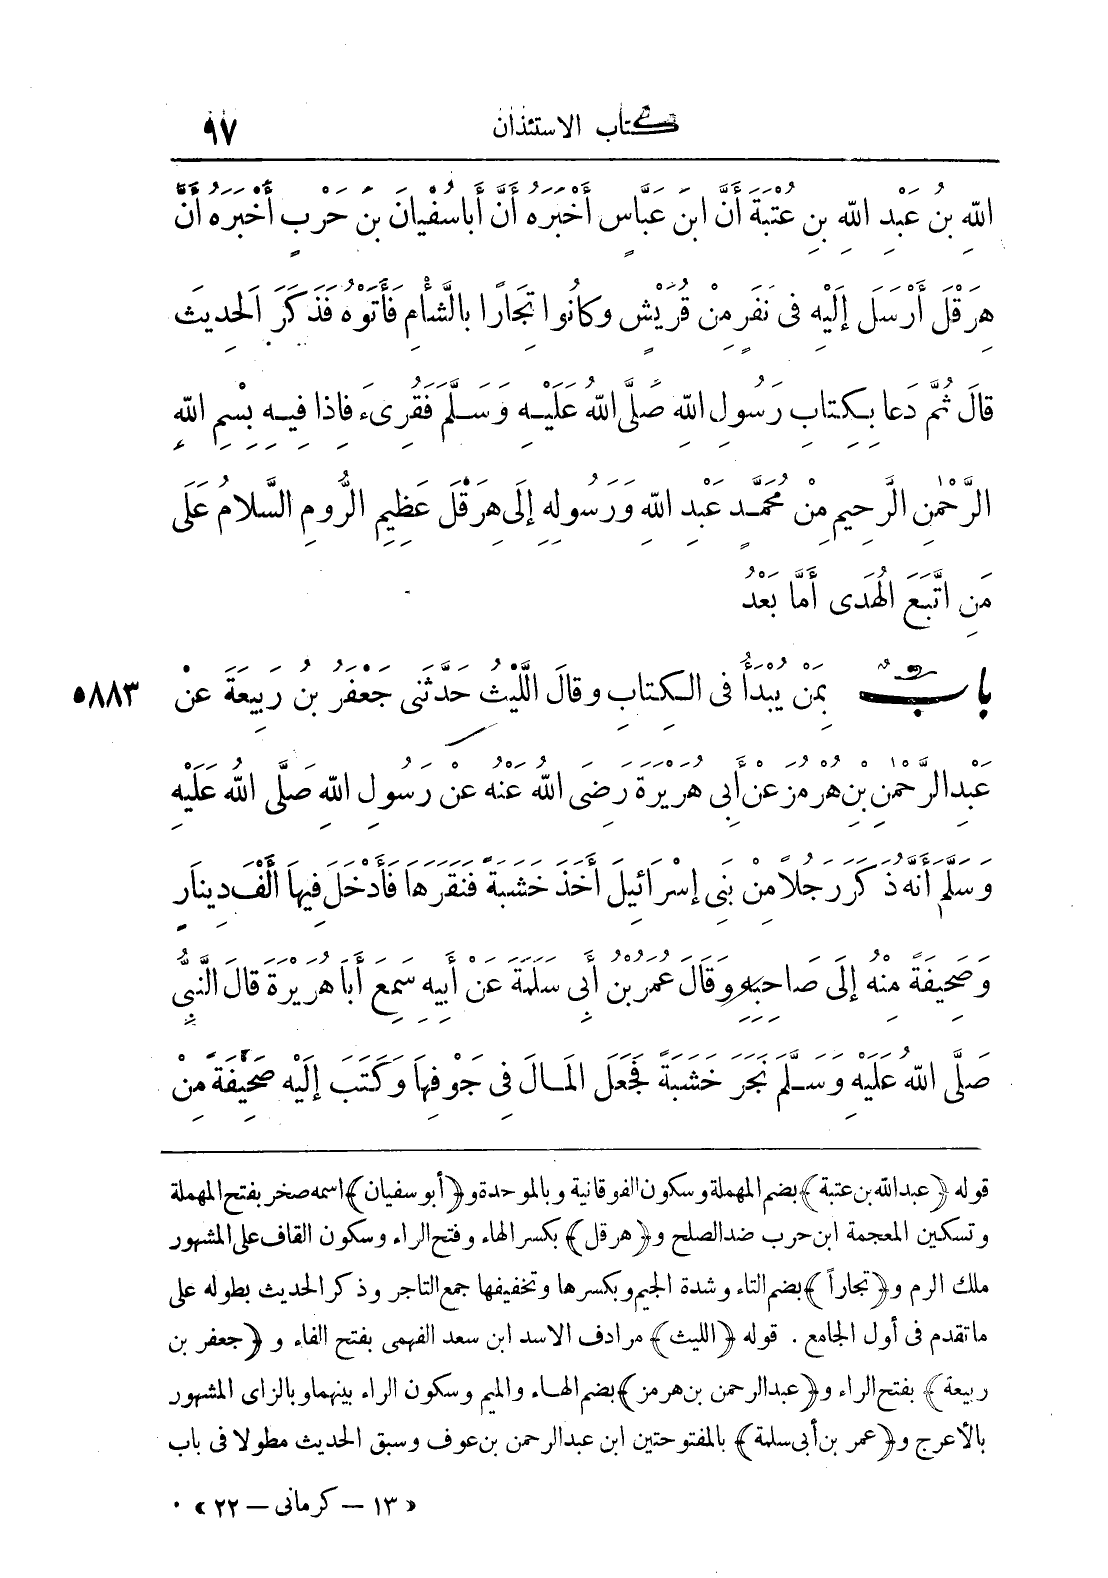 كتاب الاستئذان ٩٧
اللهِ بنُ عَبْدِ اللهِ بنِ عُتْبَةَ أَنَّ ابنَ عَبَّاسٍ أَخْبَرَهُ أَنَّ أَباسُفْيانَ بنَ حَرْبٍ أَخْبَرَهُ أَنَّ
هِرَقْلَ أَرْسَلَ إِلَيْهِ فى نَفَرٍ مِنْ قُرَيْشٍ وكانُوا تِجَارًا بالشَّأْمِ فَأَتَوْهُ فَذَكَرَ الحَدِيثَ
قالَ ثُمَّ دَعا بِكِتابِ رَسُولِ اللهِ صَلَّى اللهُ عَلَيْهِ وَسَلَّمَ فَقُرِىءَ فاذا فِيهِ بِسْمِ اللهِ
الرَّحْمٰنِ الرَّحِيمِ مِنْ مُحَمَّدٍ عَبْدِ اللهِ وَرَسُولِهِ إِلَى هِرَقْلَ عَظِيمِ الرُّومِ السَّلامُ عَلَى
مَنِ اتَّبَعَ الهُدَى أَمَّا بَعْدُ
بابُ بِمَنْ يُبْدَأُ فى الكِتابِ وقالَ اللَّيْثُ حَدَّثَنى جَعْفَرُ بنُ رَبِيعَةَ عَنْ ٥٨٨٣
عَبْدِالرَّحْمٰنِ بنِ هُرْمُزَ عَنْ أَبِى هُرَيْرَةَ رَضِىَ اللهُ عَنْهُ عَنْ رَسُولِ اللهِ صَلَّى اللهُ عَلَيْهِ
وَسَلَّمَ أَنَّهُ ذَكَرَ رَجُلًا مِنْ بَنِى إِسْرَائِيلَ أَخَذَ خَشَبَةً فَنَقَرَها فَأَدْخَلَ فِيها أَلْفَ دِينَارٍ
وَصَحِيفَةً مِنْهُ إِلَى صَاحِبِهِ وقَالَ عُمَرُ بنُ أَبِى سَلَمَةَ عَنْ أَبِيهِ سَمِعَ أَبا هُرَيْرَةَ قالَ النَّبِىُّ
صَلَّى اللهُ عَلَيْهِ وَسَلَّمَ نَجَرَ خَشَبَةً فَجَعَلَ المَالَ فِى جَوْفِها وَكَتَبَ إِلَيْهِ صَحِيفَةً مِنْ
قوله ﴿عبدالله بن عتبة﴾ بضم المهملة وسكون الفوقانية وبالموحدة و﴿أبو سفيان﴾ اسمه صخر بفتح المهملة
وتسكين المعجمة ابن حرب ضد الصلح و﴿هرقل﴾ بكسر الهاء وفتح الراء وسكون القاف على المشهور
ملك الرم و﴿تجاراً﴾ بضم التاء وشدة الجيم وبكسرها وتخفيفها جمع التاجر وذكر الحديث بطوله على
ما تقدم فى أول الجامع . قوله ﴿الليث﴾ مرادف الاسد ابن سعد الفهمى بفتح الفاء و ﴿جعفر بن
ربيعة﴾ بفتح الراء و﴿عبدالرحمن بن هرمز﴾ بضم الهاء والميم وسكون الراء بينهما وبالزاى المشهور
بالأعرج و﴿عمر بن أبى سلمة﴾ بالمفتوحتين ابن عبدالرحمن بن عوف وسبق الحديث مطولا فى باب
« ١٣ – كرمانى – ٢٢ » ٠